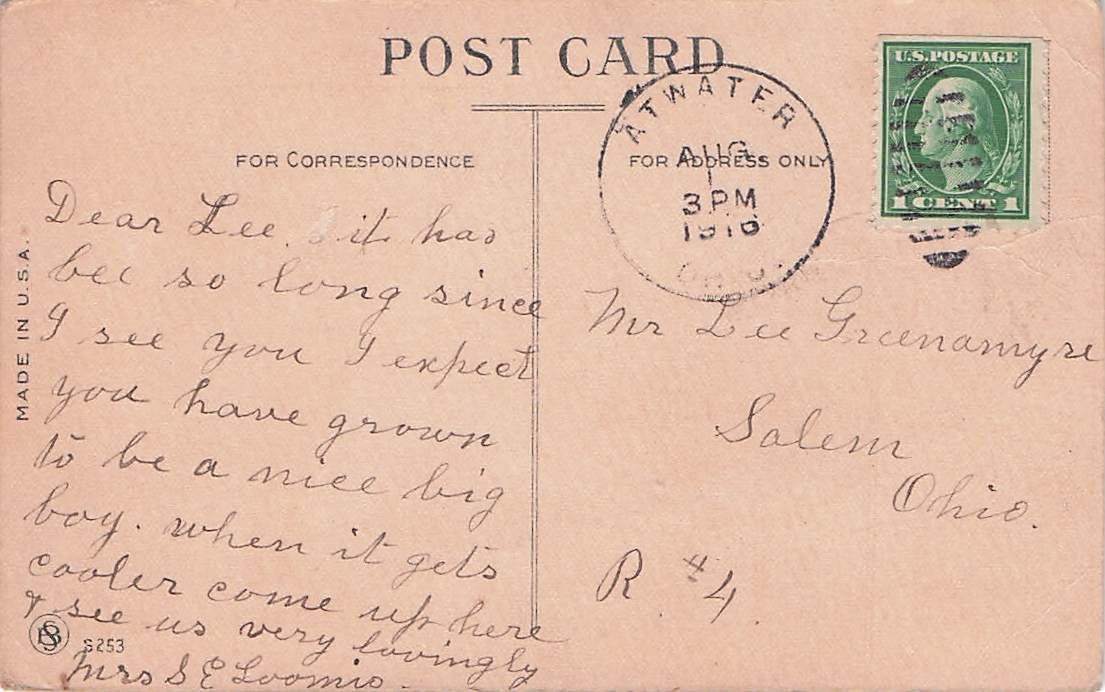 POST CARD
FOR CORRESPONDENCE
FOR ADDRESS ONLY
MADE IN U.S.A.
ATWATER
AUG
1
3 PM
1916
OHIO
U.S. POSTAGE
1 CENT 1
Dear Lee, it has
bee so long since
I see you I expect
you have grown
to be a nice big
boy. when it gets
cooler come up here
& see us very lovingly
Mrs S E Loomis.
Mr Lee Greenamyre
Salem
Ohio.
R #4
S253